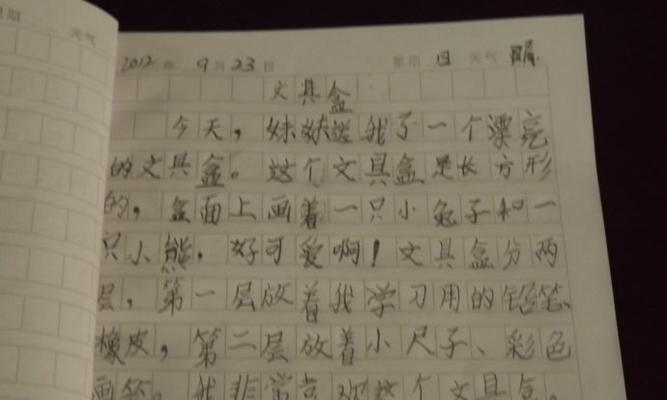 星期 天气
2012年 9月23日 星期 日 天气 晴
文具盒
今天，妹妹送我了一个漂亮
的文具盒。这个文具盒是长方形
的，盒面上画着一只小兔子和一
只小熊，好可爱啊！文具盒分两
层，第一层放着我学习用的铅笔、
橡皮，第二层放着小尺子、彩色
画笔。我非常喜欢这个文具盒。